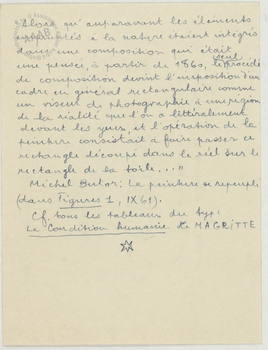 "Alors qu'auparavant les éléments
empruntés à la nature étaient intégrés
dans une composition qui était
une pensée, à partir de 1860, le seul procédé
de composition devint l'imposition d'un
cadre en général rectangulaire comme
un viseur de photographie à une région
de la réalité que l'on a littéralement
devant les yeux, et l'opération de la
peinture consistait à faire passer ce
rectangle découpé dans le réel sur le
rectangle de la toile..."
Michel Butor: La peinture se repeuple
(dans Figures 1, IX 61).
Cf. tous les tableaux du type:
La Condition humaine de MAGRITTE